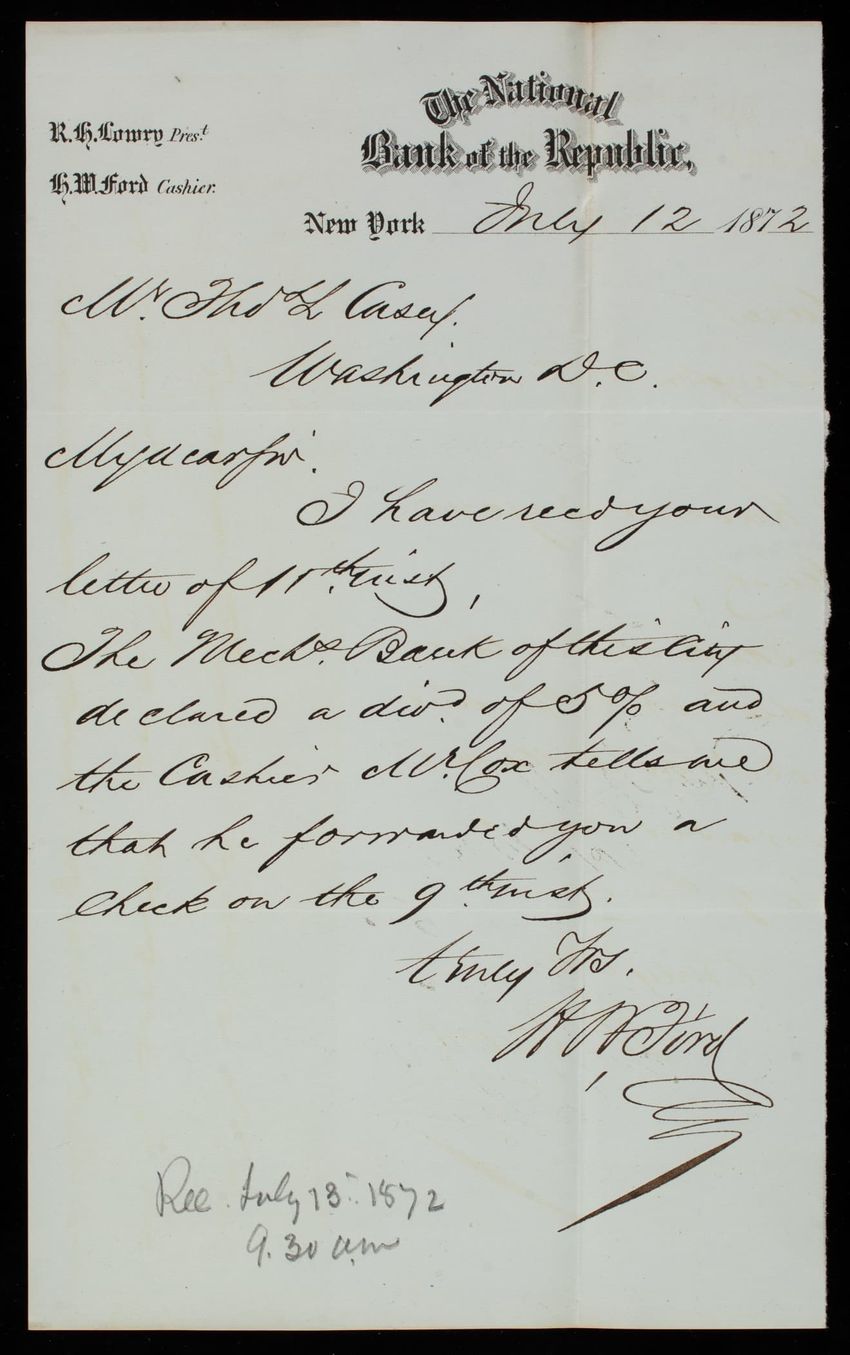 R.H. Lowry Pres.t
H.W. Ford Cashier.
The National
Bank of the Republic,
New York July 12 1872
Mr. Thos L Casey.
Washington D.C.
My dear Sir.
I have recd your
letter of 11th inst,
The Mechs. Bank of this City
declared a divd. of 5% and
the Cashier Mr. Cox tells me
that he forwarded you a
check on the 9th inst.
truly Yrs.
H W Ford
Rec. July 13. 1872
9.30 am